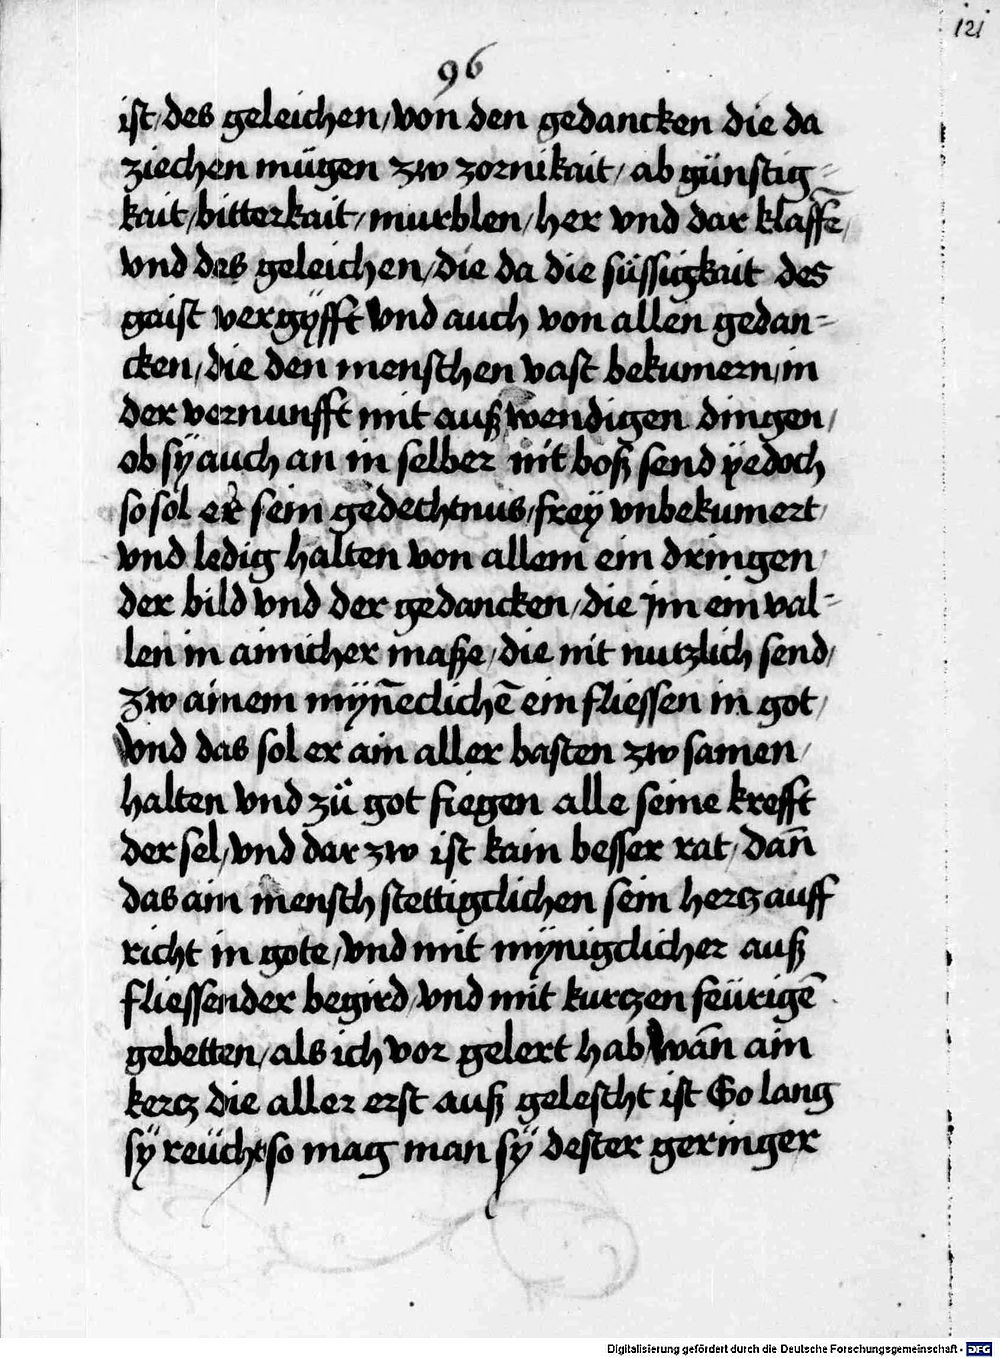 121
96
ist / des geleichen / von den gedancken die da
ziechen mügen zw zornikait / ab günstig-
kait / bitterkait / murblen / her vnd dar klaffē /
vnd des geleichen / die da die süssigkait des
gaist vergÿfft vnd auch von allen gedan-
cken / die den menschen vast bekumern / in
der vernunfft mit außwendigen dingen /
ob sÿ auch an in selber nit boß send ÿedoch
so sol er sein gedechtnus / frey vnbekumert /
vnd ledig halten von allem ein dringen /
der bild vnd der gedancken / die jm ein val-
len in ainicher maße / die nit nutzlich send /
zw ainem mÿn̄eclichē ein fliessen in got /
vnd das sol er ain aller basten zw samen /
halten vnd zů got fiegen alle seine krefft
der sel / vnd dar zw ist kain besser rat / dan̄
das ain mensch stettigclichen sein hertz auff
richt in gote / vnd mit mÿnigclicher auß
fliessender begird / vnd mit kurtzen feürigē
gebetten / als ich vor gelert hab / wan̄ ain
kertz die aller erst auß gelescht ist So lang
sÿ reücht / so mag man sÿ dester geringer
Digitalisierung gefördert durch die Deutsche Forschungsgemeinschaft - DFG